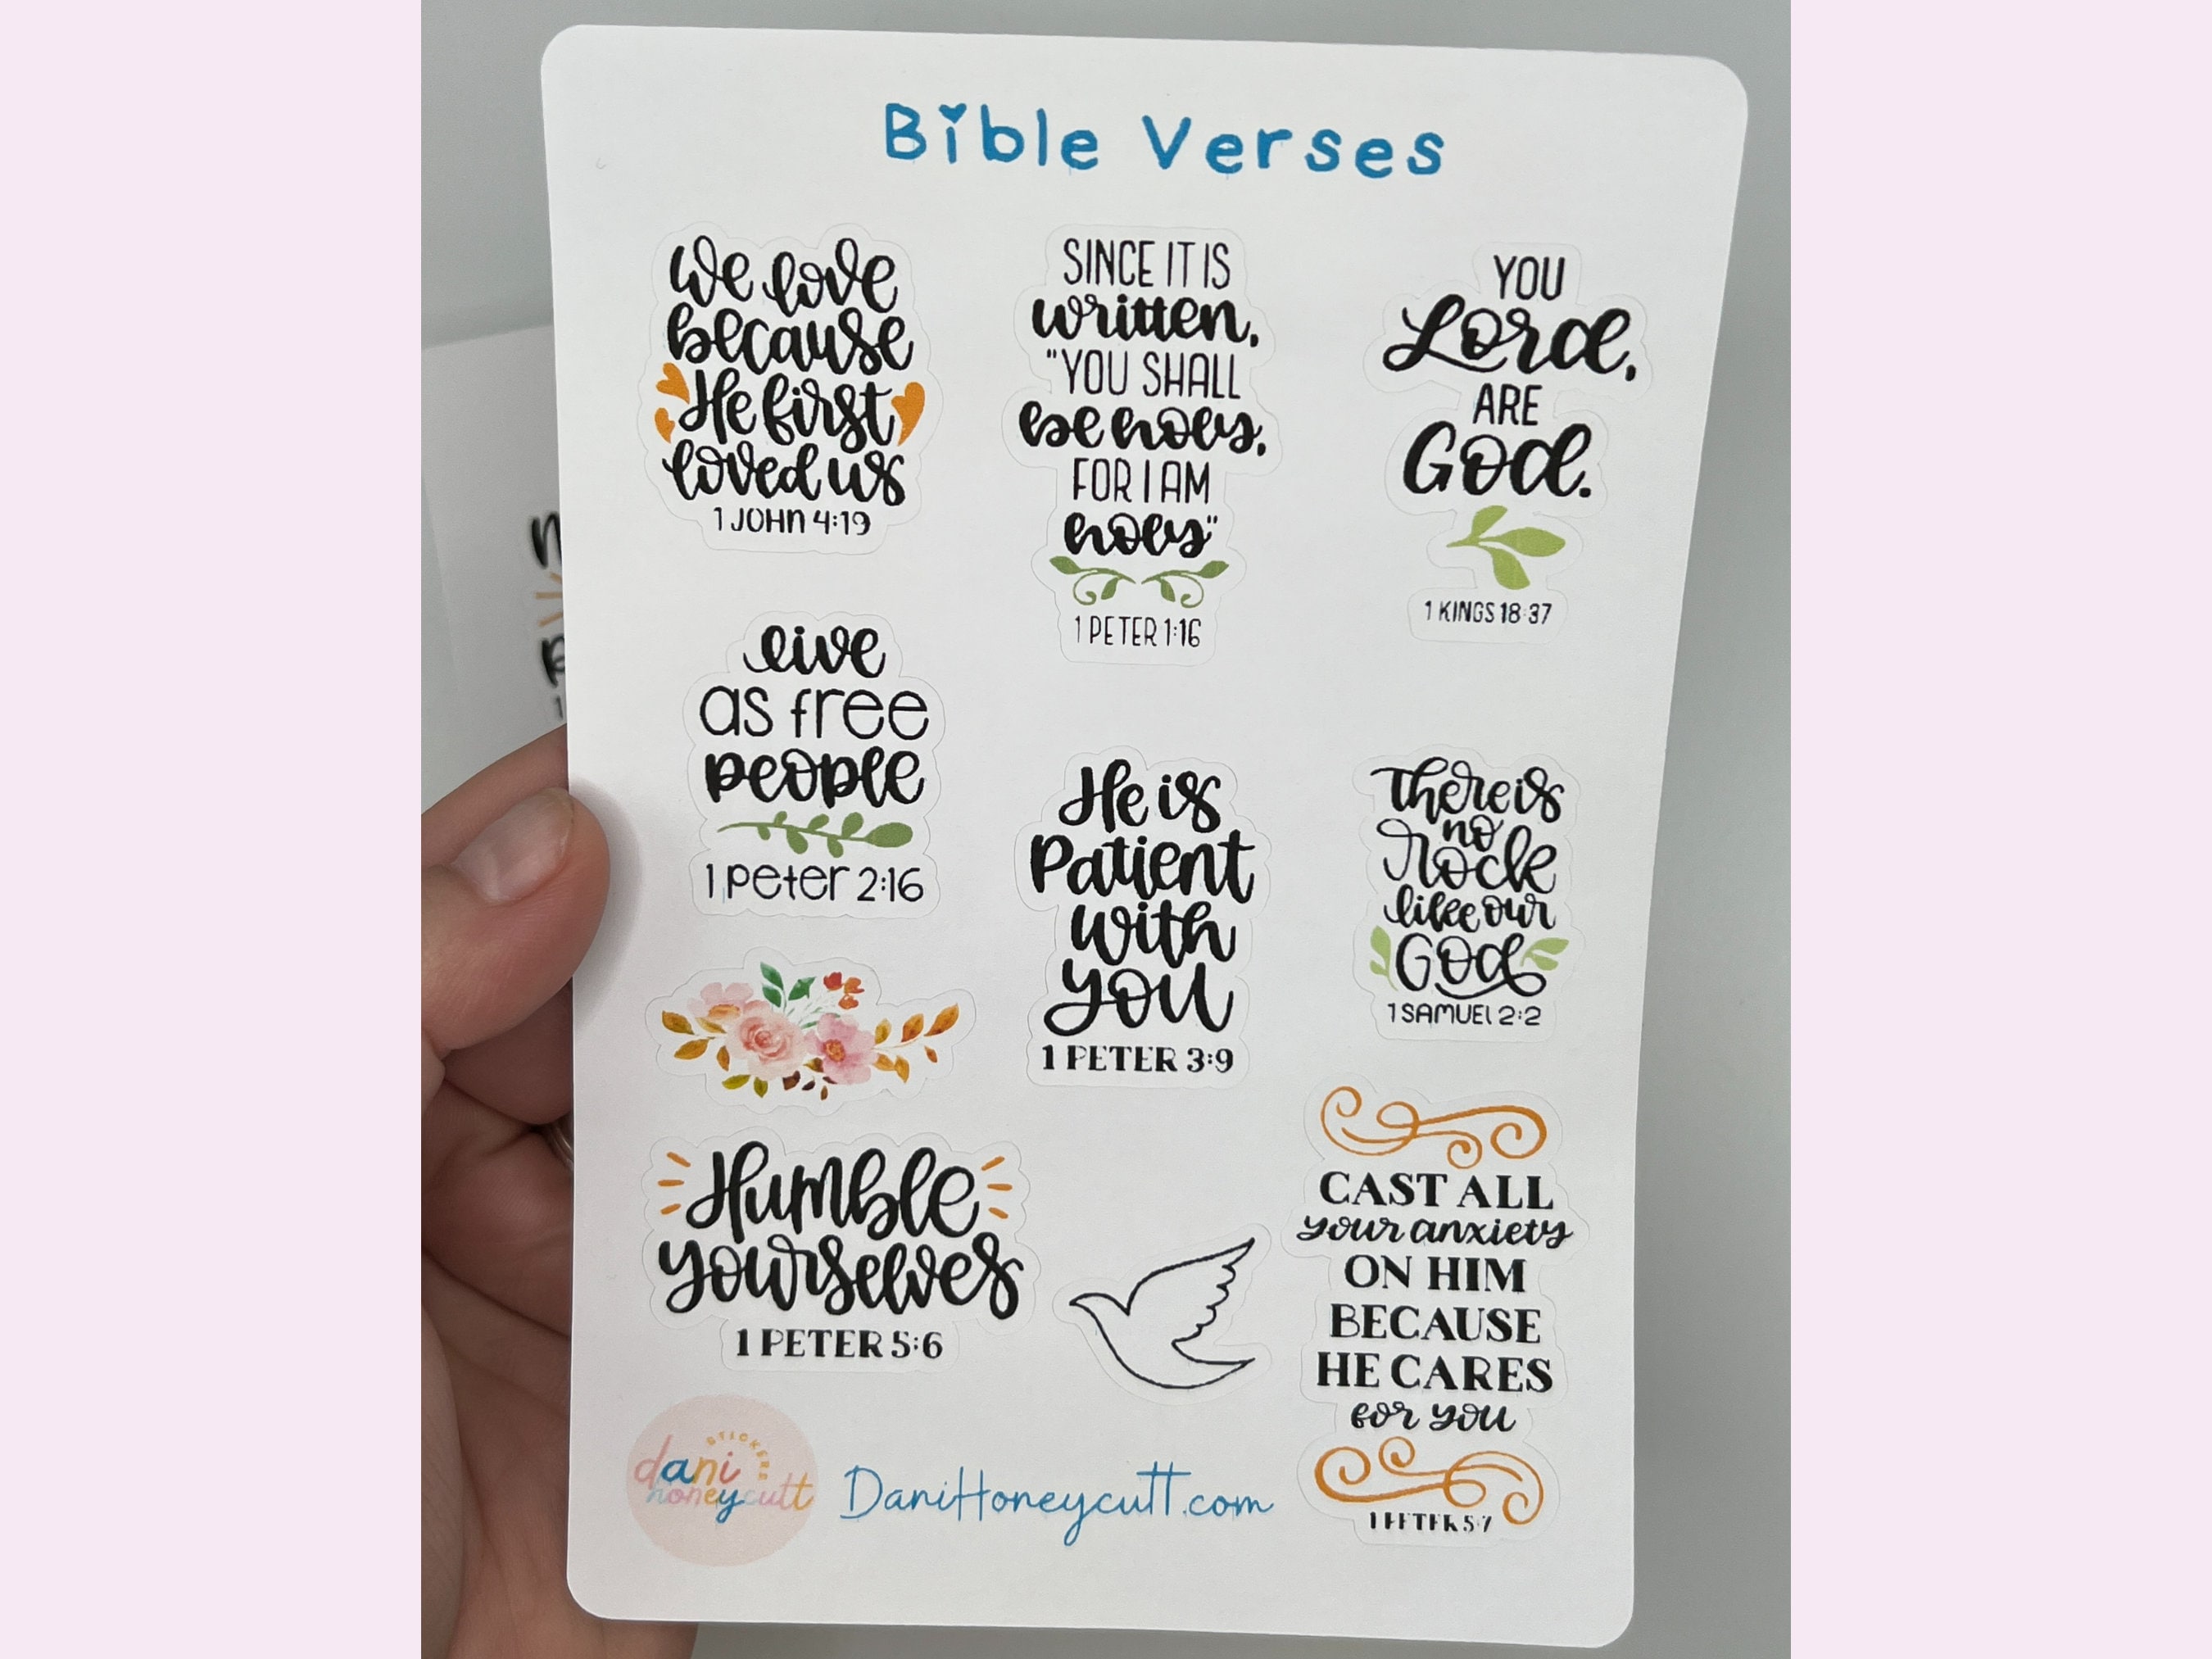 Bible Verses
We love
because
He first
loved us
1 JOHN 4:19
SINCE IT IS
written,
"YOU SHALL
be holy,
FOR I AM
holy"
1 PETER 1:16
YOU
Lord,
ARE
God.
1 KINGS 18:37
live
as free
people
1 peter 2:16
He is
Patient
with
you
1 PETER 3:9
There is
no
rock
like our
God
1 SAMUEL 2:2
Humble
yourselves
1 PETER 5:6
CAST ALL
your anxiety
ON HIM
BECAUSE
HE CARES
for you
1 PETER 5:7
STICKERS
dani
honeycutt
DaniHoneycutt.com